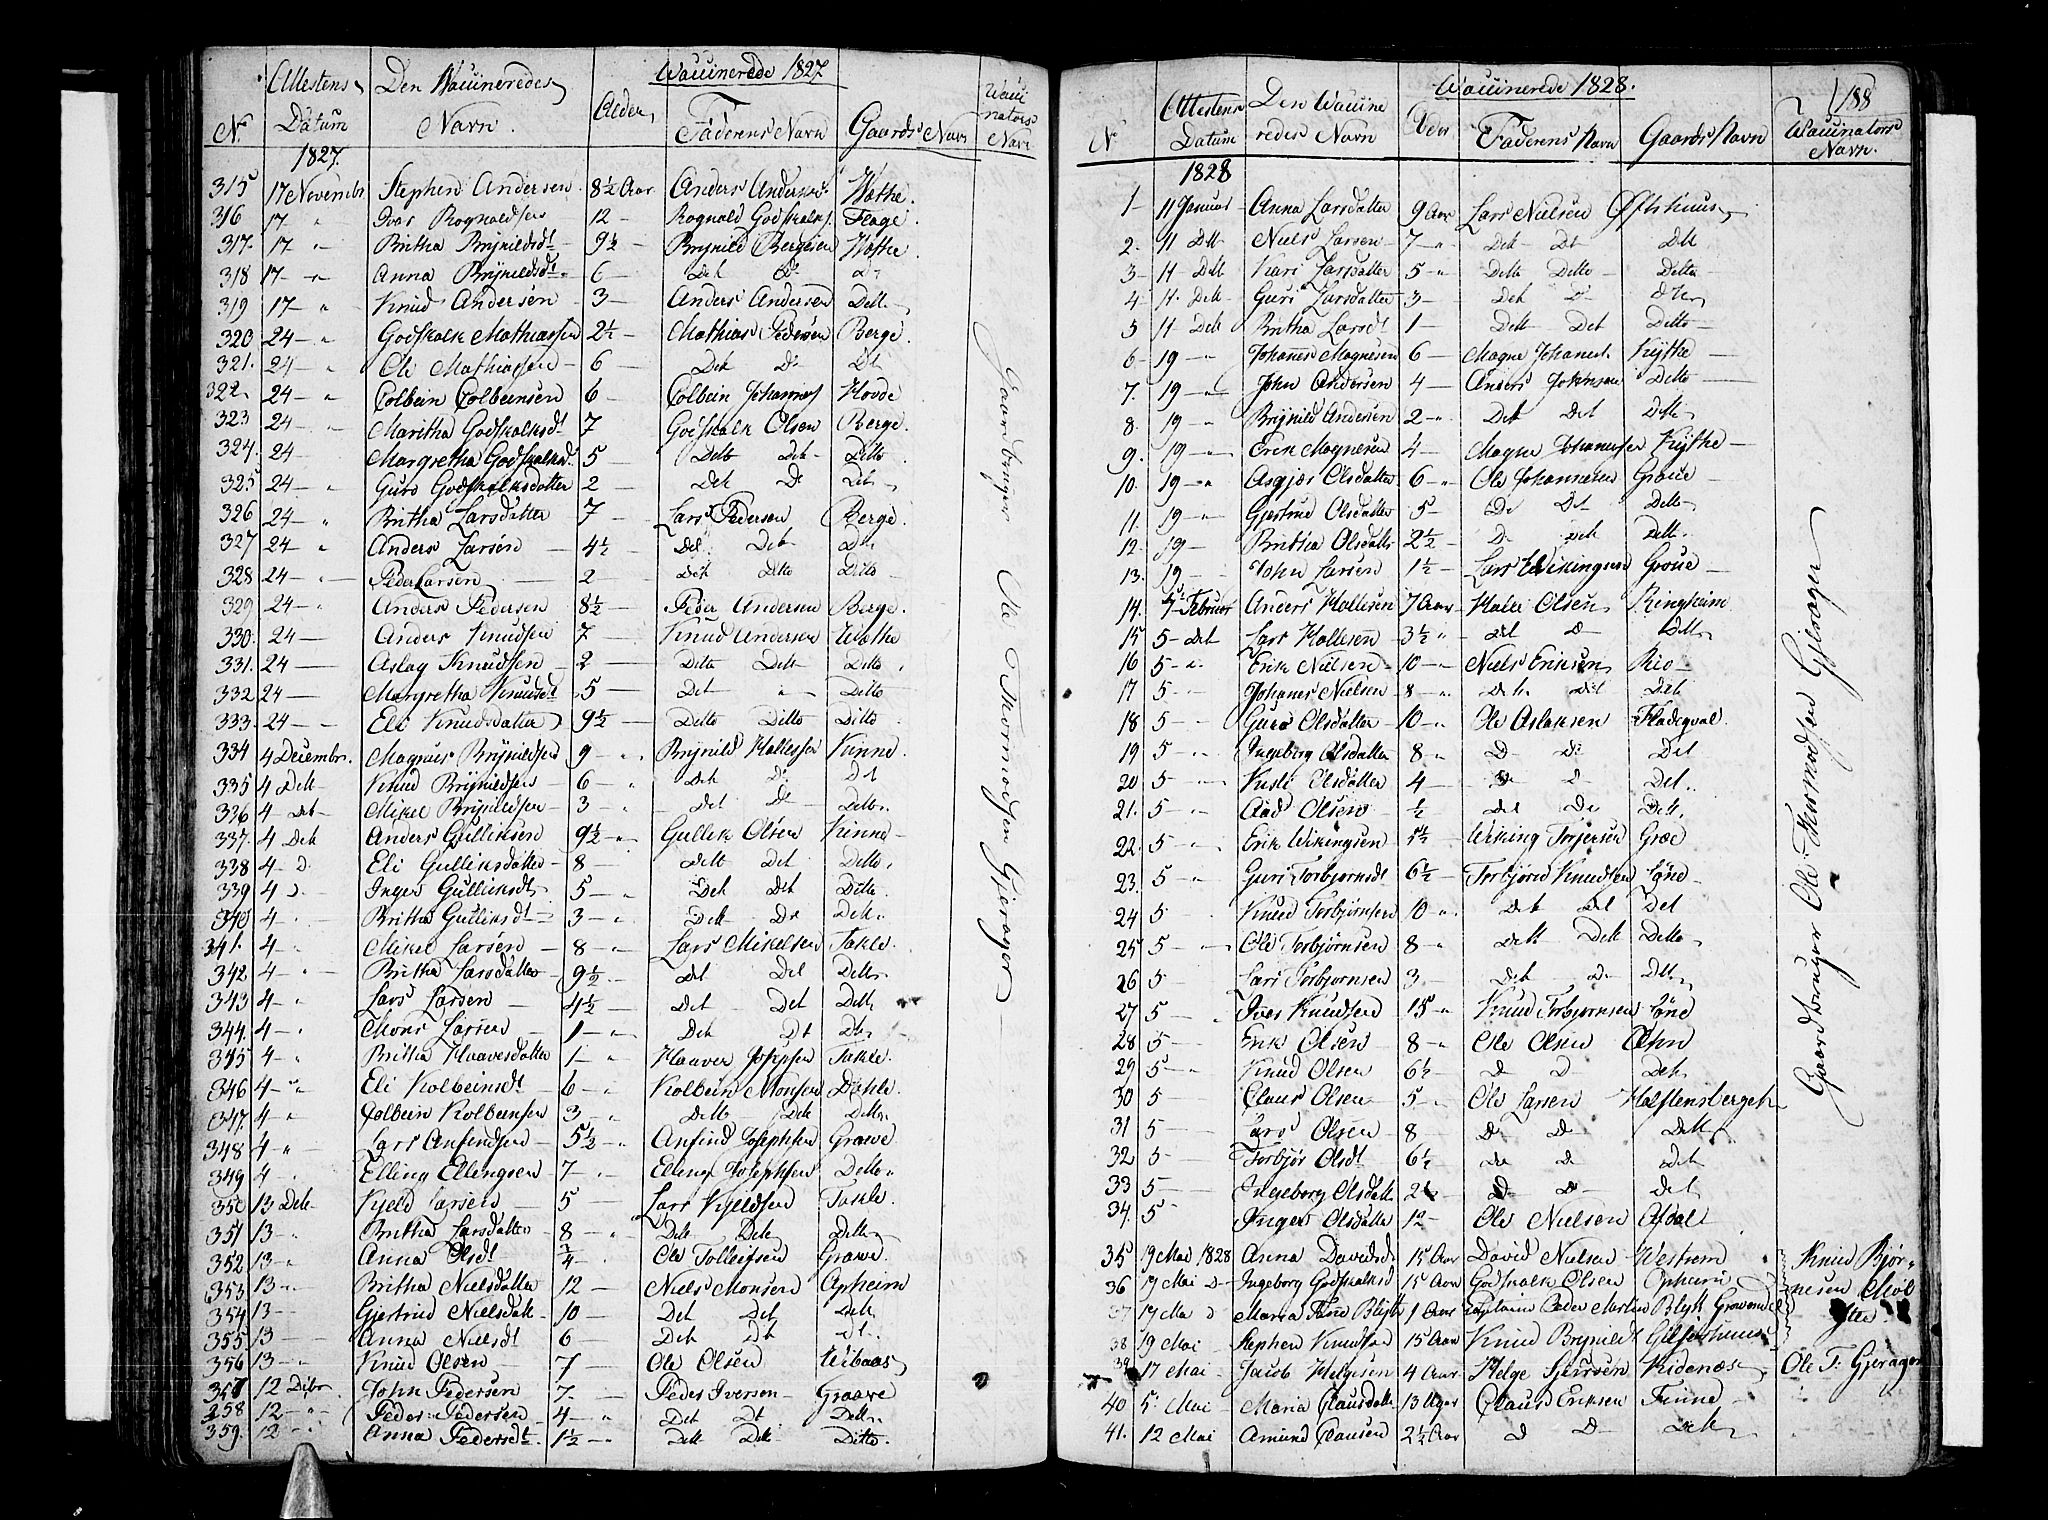 Waccinerede 1827
N. Attestens Datum Den Waccineredes Navn. Alder Faderens Navn Gaards Navn Waccinators Navn
1827.
315 17 Novembr. Stephen Andersen 8½ Aar Anders Anders
316 17 " Ivar Rognaldsen 12 - Rognald Godskalks. Flage.
317. 17 " Britha Brynildsdt 9½ - Brynild Bergesen
318 17 - " Anna Brynildsdt 6 - Det D: D:
319 17 - " Knud Andersen 3 - Anders Andersen Dett
320 24 - " Godskalk Mathiassen 2½ - Mathias Pedersen Berge.
321. 24 - " Ole Mathiassen - 6 - Det D: Dt
322. 24 - " Colbein Colbeinsen 6 - Colbein Johannes Hovde
323 24 - " Maritha Godskalksdt 7 Godskalk Olsen Berge.
324. 24 - Margretha Godskalksd. 5 - Dette Det- Ditto
325 24 - " Guro Godskalksdatter 2 - Det D Det
326 24 - " Britha Larsdatter 7 - Lars Pedersen Berge.
327 24 - " Anders Larsen - 4½ - Det Det Dt
328 24 - " Peder Larsen - 2 - Det Ditto Ditto
329 24 - " Anders Pedersen 8½ - Peder Andersen Berge.
330. 24 - Anders Knudsen 7 - Knud Andersen
331. 24 - Aslag Knudsen - 2 - Ditto Dett Ditto
332 24 - Margretha Knudsdt 5 - Det " Ditto
333. 24 - " Eli Knudsdatter 9½ - Ditto Ditto Ditto
334 4 Decembr. Magnus Brynildsen 9 - " Brynild Hallesen Kinne.
335 4 Dett Knud Brynildsen 6 - " Det D: Dt
336 4 Det Mikel Brynildsen 3 - " Det D: Dette
337. 4 Det Anders Gulliksen 9½ - " Gullik Olsen Kinne
338 4 - D. Eli Gulliksdatter 8 - Dett Det Dette
339 4 D. Inger Gulliksdt 5 - " Det Det Ditto
340 4 - Britha Gulliksdt 3 - " Dett De Dett
341. 4 - Mikel Larsen - 8 - Lars Mikelsen Takle.
342. 4 - " Britha Larsdatter 9½ - Det Det Dett
343 4 - " Lars Larsen - 4½ - Det Det Dett
344. 4 - " Mons Larsen - 1 - " Det Dt Dt
345 4 - " Britha Haavesdatter 1 - " Haaver Josepsen Takle.
346 4 - " Eli Kolbeinsdt 6 - " Kolbein Monsen Dahle.
347. 4 - " Colbein Kolbeinsen 3 - " Dett Det Dett
348 4 - " Lars Anfindsen - 5½ - " Anfind Josephsen Grawe.
349 4 - " Elling Ellingsen 7 - " Elling Josephsen Ditto
350 13 Det Kjeld Larsen 5 - Lars Kjeldsen Takle.
351 13 " Britha Larsdatter 8 - " Det Det Dett
352. 13 " Anna Olsdt ¾ - Ole Tolleifsen Grawe.
353 13 - " Britha Nielsdatter 12 - Niels Monsen Opheim
354 13 - Gjertrud Nielsdatt 10 - Det Det Dett
355 13 - Anna Nielsdt 6 - Det Dt Dt.
356 13 - " Knud Olsen 7 - Ole Olsen
357 12 Dcbr. John Pedersen 7. - Peder Iversen - Graave
358 12 - " Peder Pedersen 4 - " Det Dt Dett
359. 12 - " Anna Pedersdt 1½ - " Dett Dett Ditto
Gaardbruger Ole Thormodsen Gjerager
188
Waccinerede 1828.
N. Attestens Datum Den Waccineredes Navn Alder Faderens Navn Gaards Navn Waccinators Navn.
1828
1 - 11 Januar Anna Larsdatter 9 Aar Lars Nielsen
2. 11 Dett Niels Larsen 7 - " Det Dt Dtt
3 - 11 - Dett Kari Larsdatter 5 - " Dette Ditto Ditto
4 - 11. Dett Guri Larsdatter 3 - Det D
5 11 Dett Britha Larsdt 1 - Dett Det Ditto
6 - 19 - " Johannes Magnesen 6 - Magne Johannes. Kytke
7. 19 - " John Andersen 4 - Anders Johnsen Ditto
8. 19 - " Brynild Andersen 2 - " Det Det Dett
9. 19 - " Erik Magnesen 4 - Magne Johannesen Kytke
10. 19 - " Asgjer Olsdatter 6 - " Ole Johannesen Groue
11. 19 - " Gjertrud Olsdatter 5 - De Det Ditto
12. 19 - Britha Olsdatt 2½ - D Det Dett
13. 19 - John Larsen 1½ - Lars Wikingsen Groue
14. 5 Februar Anders Hallesen 7 Aar Halle Olsen Ringheim
15 5 - Det Lars Hallesen 3½ " Det D Dett
16 5 - " Erik Nielsen 10 - " Niels Eriksen Rio
17 5 - Johanes Nielsen 8 - " Det Dit Det
18 5 - Guro Olsdatter 10 - " Ole Aslaksen Fladeqval
19 5 - " Ingeborg Olsdatter 8 " D D: Det
20 5 - Kusli Olsdatter 4 - D D Det.
21. 5 - Aad Olsen ½ Det De Dett
22. 5 - " Erik Wikingsen Wiking Torjersen Græe
23. 5 - " Guri Torbjørnsdt 6½ - Torbjørn Knudsen
24 5 Knud Torbjørnsen 10 " Det Det Det
25 5 - Ole Torbjørnsen 8 " Dett Dett Ditto
26 5 - Lars Torbjørnsen 3 - Det D Dett
27 5 - Iver Knudsen 15 " Knud Torbjørnsen
28 5 - Erik Olsen 8 - " Ole Olsen
29 5 - " Knud Olsen 6½ - D D Det
30 5 Claus Olsen 5 - " Ole Larsen
31 5 - Lars Olsen 8 - D D Dett
32 5 - Torbjør Olsdt 6½ De D Det
33 5 - Ingeborg Olsdatt 2½ D D Det
34. 5 Inger Olsdatter 12 - Ole Nielsen
35 19 Mai 1828 Anna Davidsd 15 Aar David Nielsen Westrem Knud Bjør-
36 19 Mai D - Ingeborg Godskalksd 15 Aar Godskalk Olsen Opheim nesen
37 19 Ma D Maria Blytt 1 Aar Capitaine Peder Blytt
38 19 Mai Stephen Knudsen 15 Aar Knud Brynilds.
39 17 Mai - Jacob Helgesen 4 Aar Helge Widenæs Ole T: Gjerager
40 5. Mai - Maria Clausdatt 13 Uger Claus Eriksen Finne
41. 12 Mai Amund Clausen 2½ Aar D D Dett
Gaardbruger Ole Thormodsen Gjerager